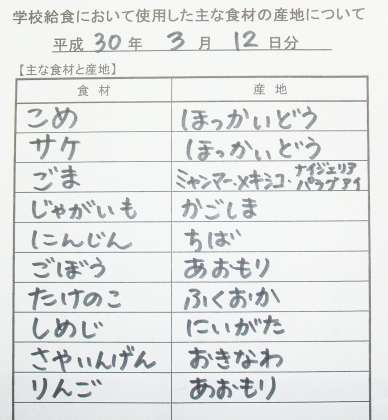 学校給食において使用した主な食材の産地について
平成 30 年 3 月 12 日分
【主な食材と産地】
食材 産地
こめ ほっかいどう
サケ ほっかいどう
ごま ミャンマー・メキシコ・ナイジェリア パラグアイ
じゃがいも かごしま
にんじん ちば
ごぼう あおもり
たけのこ ふくおか
しめじ にいがた
さやいんげん おきなわ
りんご あおもり